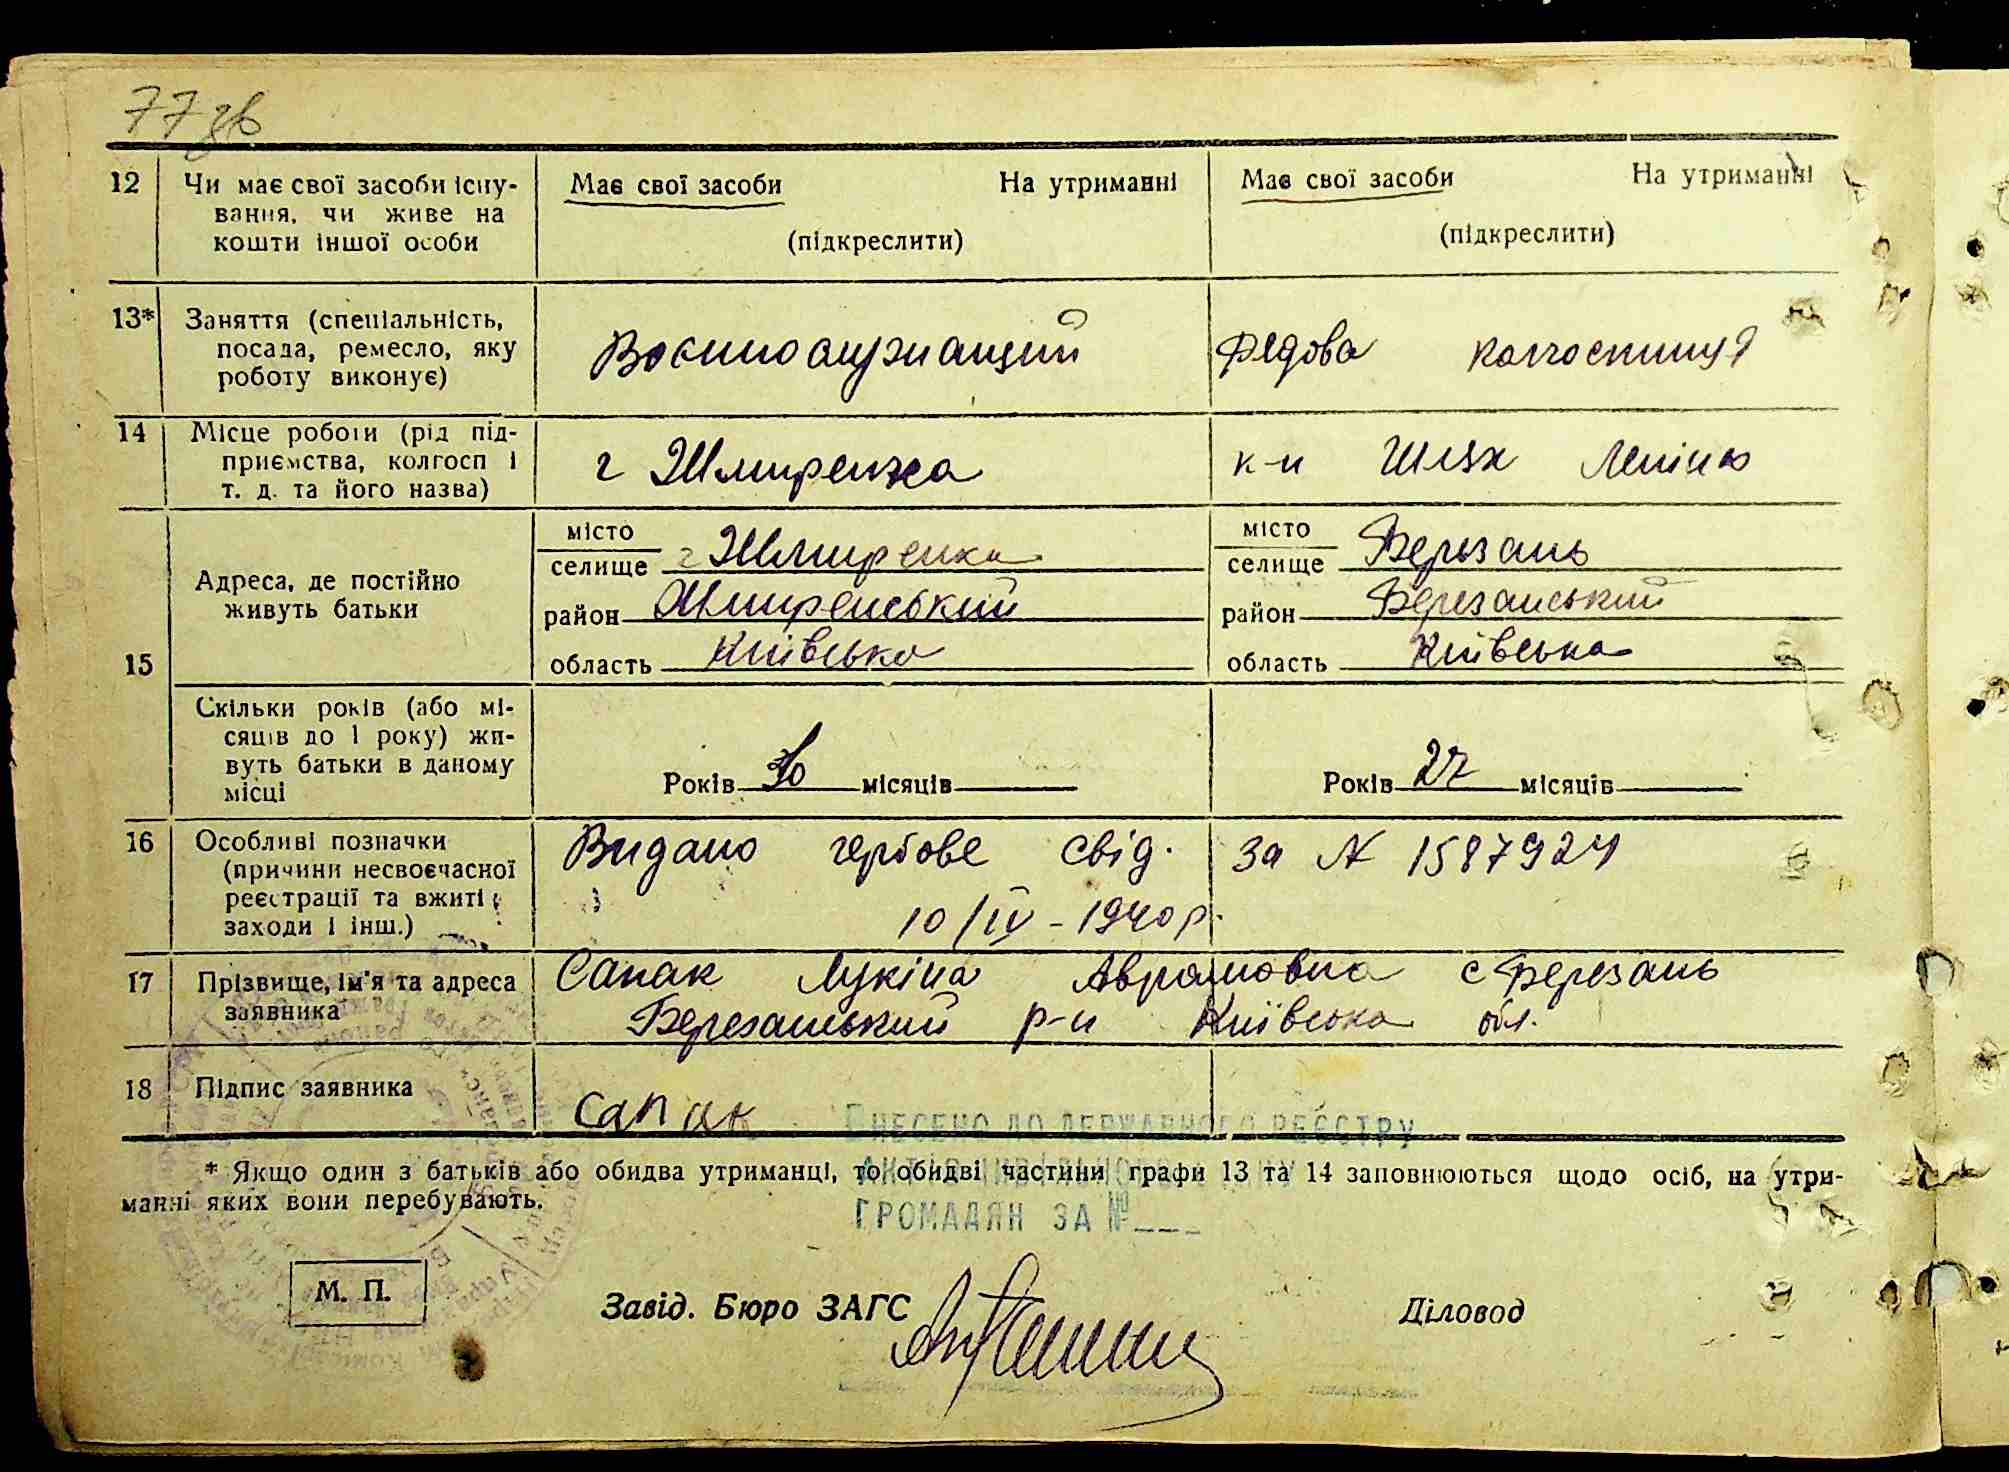 77 зв
12 Чи має свої засоби існу-
вання, чи живе на
кошти іншої особи
Має свої засоби На утриманні
(підкреслити)
Має свої засоби На утриманні
(підкреслити)
13* Заняття (спеціальність,
посада, ремесло, яку
роботу виконує)
Воєннослужащий
Рядова колгоспниця
14 Місце роботи (рід під-
приємства, колгосп і
т. д. та його назва)
г Жмиренка
к-п Шлях Леніна
15
Адреса, де постійно
живуть батьки
місто
селище г Жмиренка
район Жмиренський
область Київська
місто
селище Березань
район Березанський
область Київська
Скільки років (або мі-
сяців до 1 року) жи-
вуть батьки в даному
місці
Років місяців
Років 27 місяців
16 Особливі позначки
(причини несвоєчасної
реєстрації та вжиті
заходи і інш.)
Видано гербове свід. за № 1587924
10/IV - 1940 р.
17 Прізвище, ім'я та адреса
заявника
Сапак Лукіна Аврамовна с Березань
Березанський р-н Київська обл.
18 Підпис заявника
Сапак
ВНЕСЕНО ДО ДЕРЖАВНОГО РЕЄСТРУ
* Якщо один з батьків або обидва утриманці, то обидві частини графи 13 та 14 заповнюються щодо осіб, на утри-
манні яких вони перебувають.
ГРОМАДЯН ЗА №
М. П.
Завід. Бюро ЗАГС
Діловод